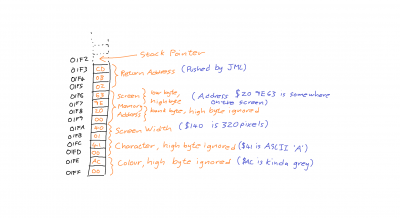 01F2 Stack Pointer
01F3 CD
01F4 03 Return Address (Pushed by JML)
01F5 02
01F6 E3 Screen Low byte, (Address $20 9EG3 is somewhere
01F7 9E Memory High byte on the screen)
01F8 20 Address bank byte, high byte ignored
01F9 00
01FA 40 Screen Width ($140 is 320 pixels)
01FB 01
01FC 41 Character, high byte ignored ($41 is ASCII 'A')
01FD 00
01FE AC Colour, high byte ignored ($AC is kinda grey)
01FF 00